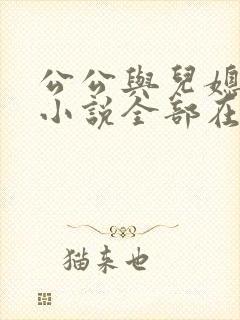 公公與兒媳
小說全部在
猫来也